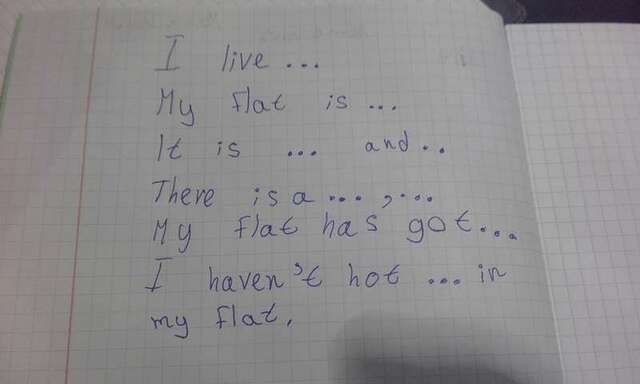 I live ...
My flat is ...
It is ... and ..
There is a ... , ...
My flat has got ...
I haven't hot ... in
my flat.